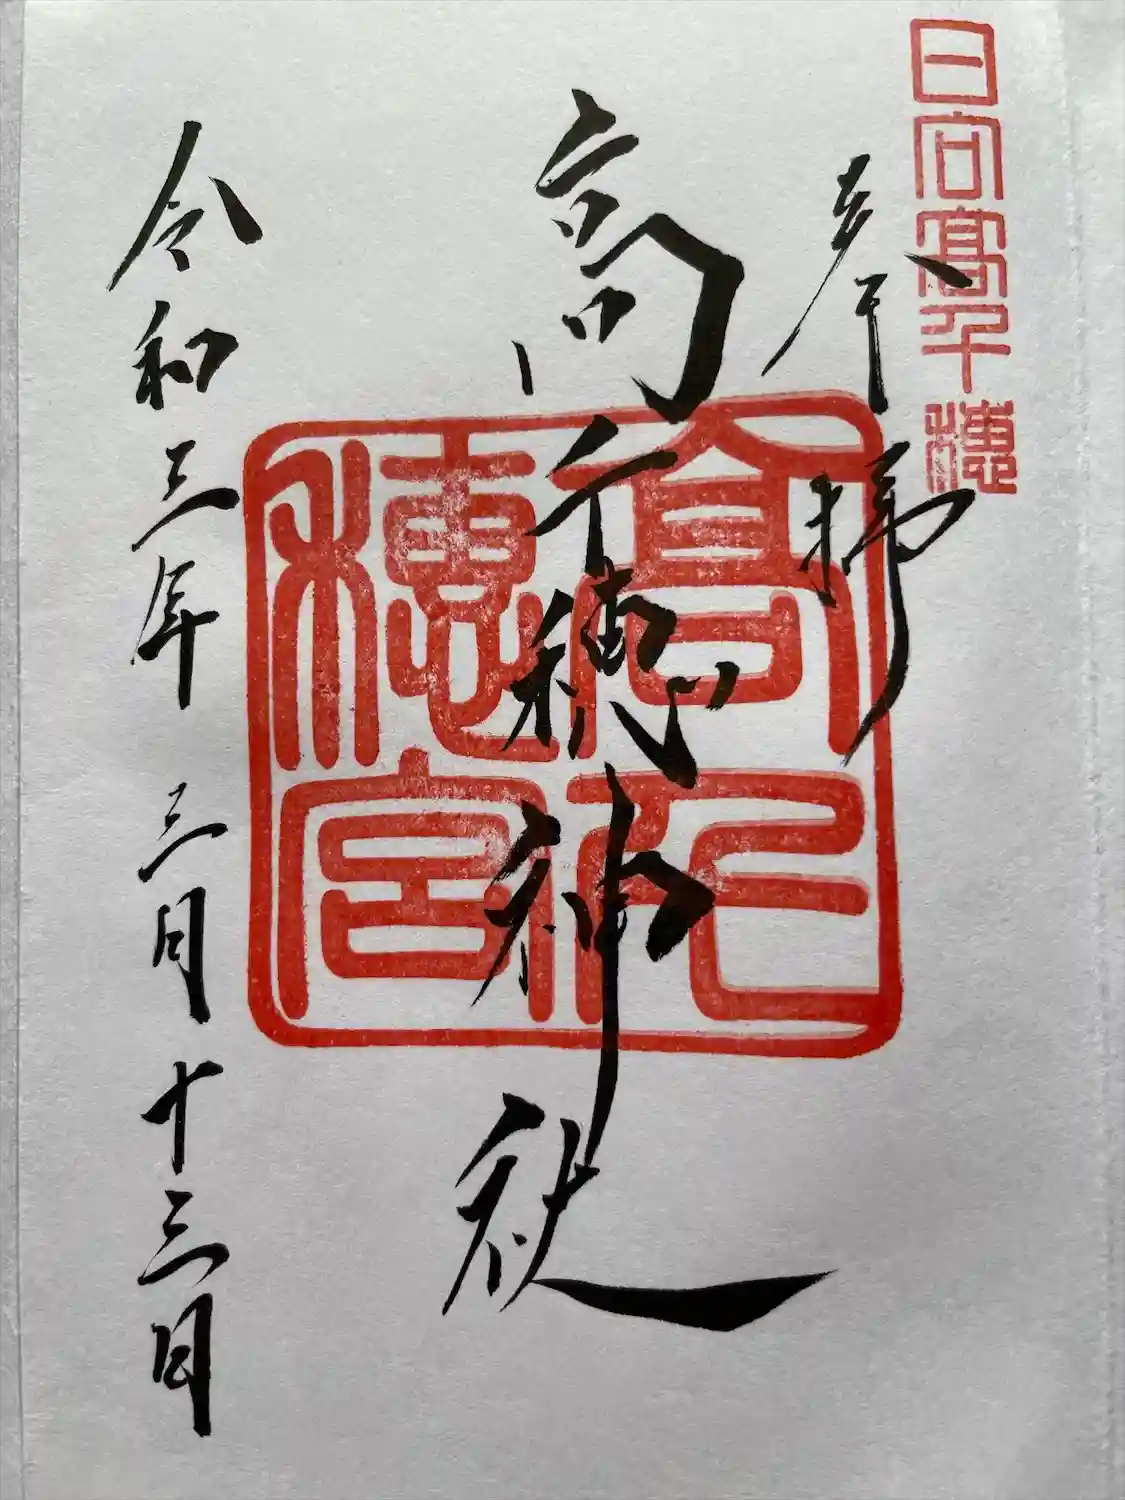 日向髙千穗
奉拝
高千穂神社
高千穗宮
令和三年三月十三日